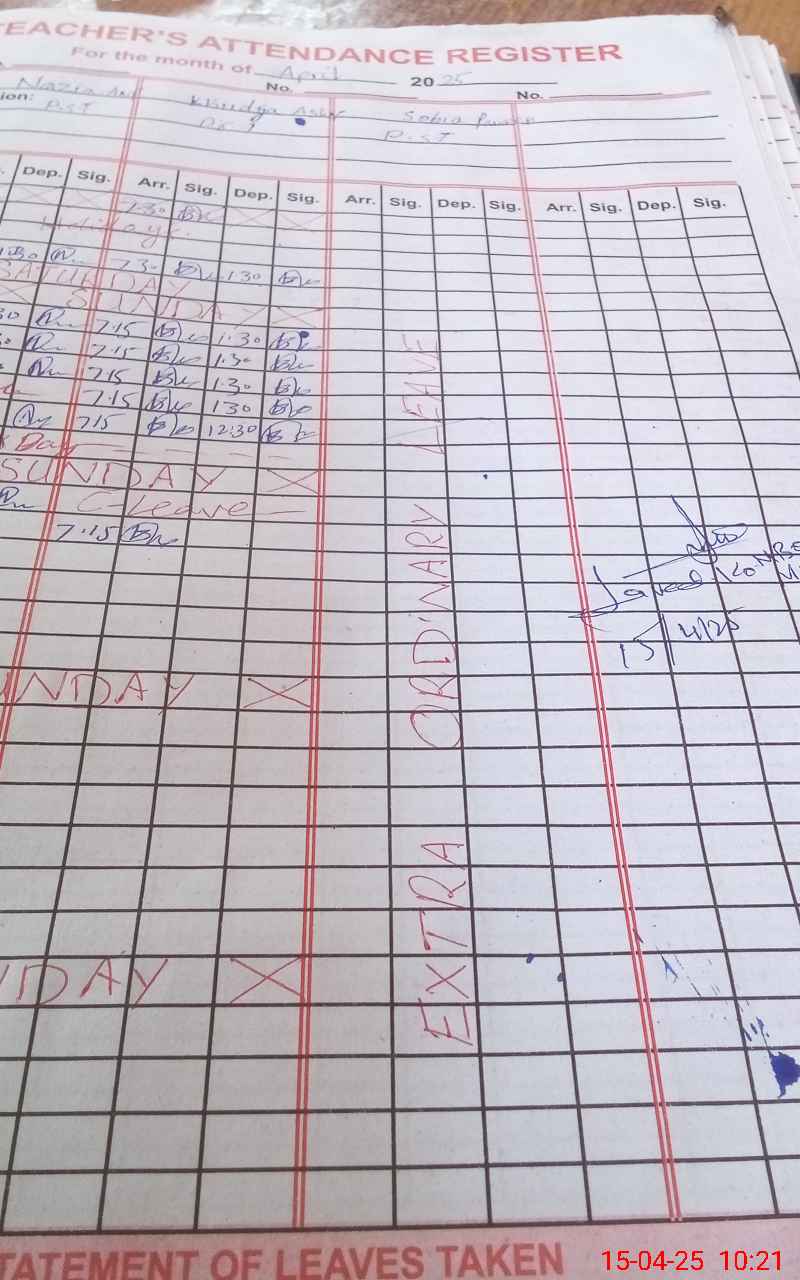 TEACHER'S ATTENDANCE REGISTER
For the month of April 2025
No. No.
Nazia
Sobia
ion: P.S.T
P.S.T
Dep. Sig. Arr. Sig. Dep. Sig. Arr. Sig. Dep. Sig. Arr. Sig. Dep. Sig.
7.30
Holidays.
1:30 7.30 1.30
SATURDAY
SUNDAY
30 7.15 1.30
7.15 1.30
7.15 1.30
7.15 1.30
7.15 12:30
Day
SUNDAY
C-Leave
7.15
UNDAY
NDAY
EXTRA ORDINARY LEAVE
Javed
15/4/25
STATEMENT OF LEAVES TAKEN
15-04-25 10:21